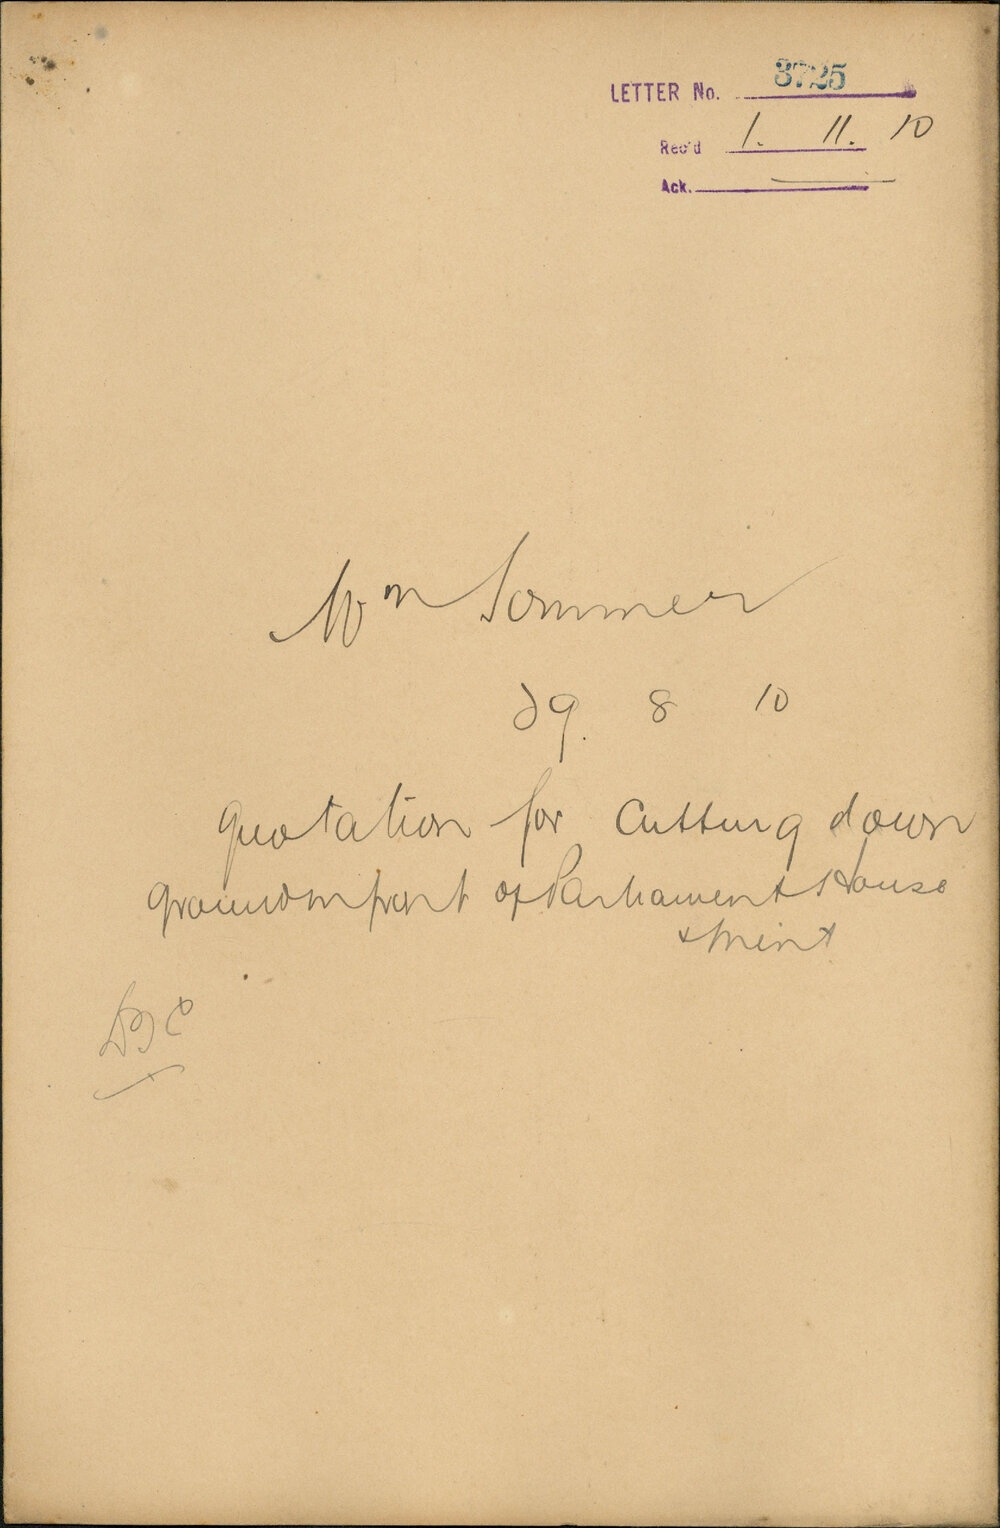 LETTER No. 3725
Rec'd 1. 11. 10
Ack.
Wm Sommer
29. 8 10
Quotation for Cutting down
ground in front of Parliament House
& Mint